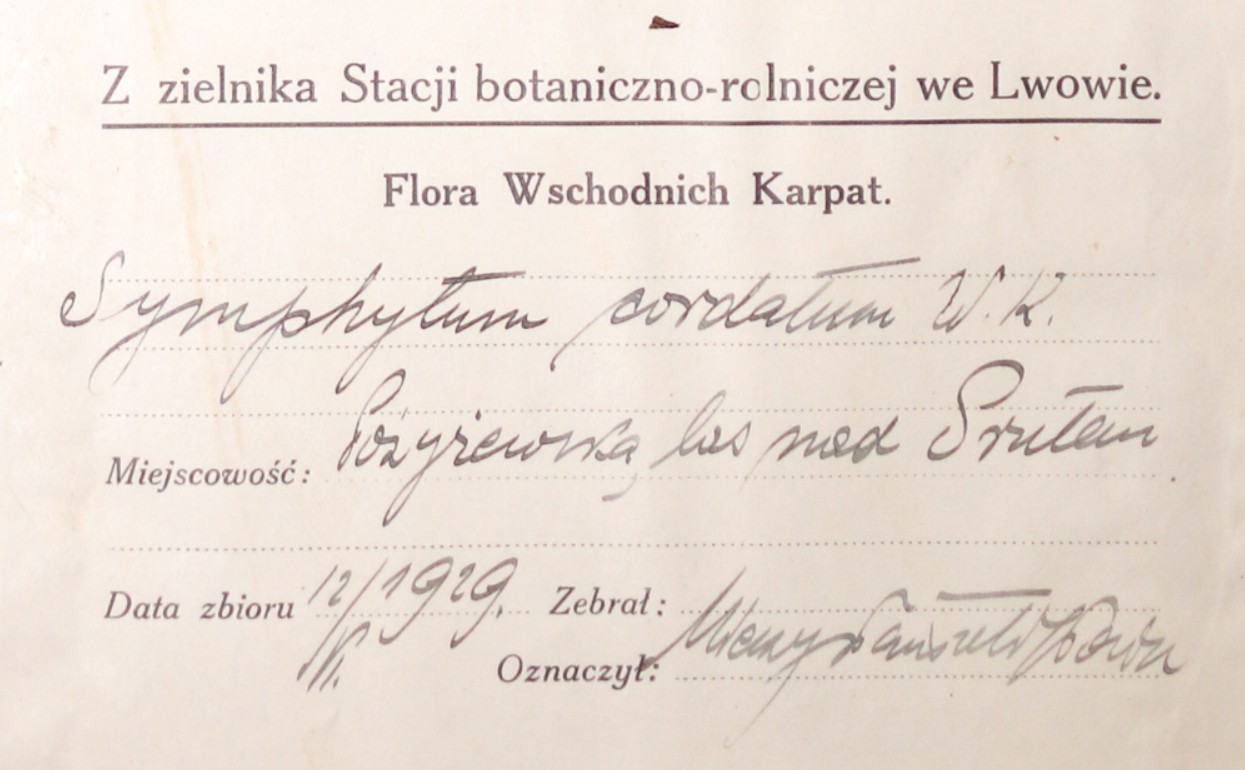 Z zielnika Stacji botaniczno-rolniczej we Lwowie.
Flora Wschodnich Karpat.
Symphytum cordatum W. K.
Miejscowość: Pożyżewską las nad Prutem
Data zbioru 12/VI. 1929. Zebrał:
Oznaczył: